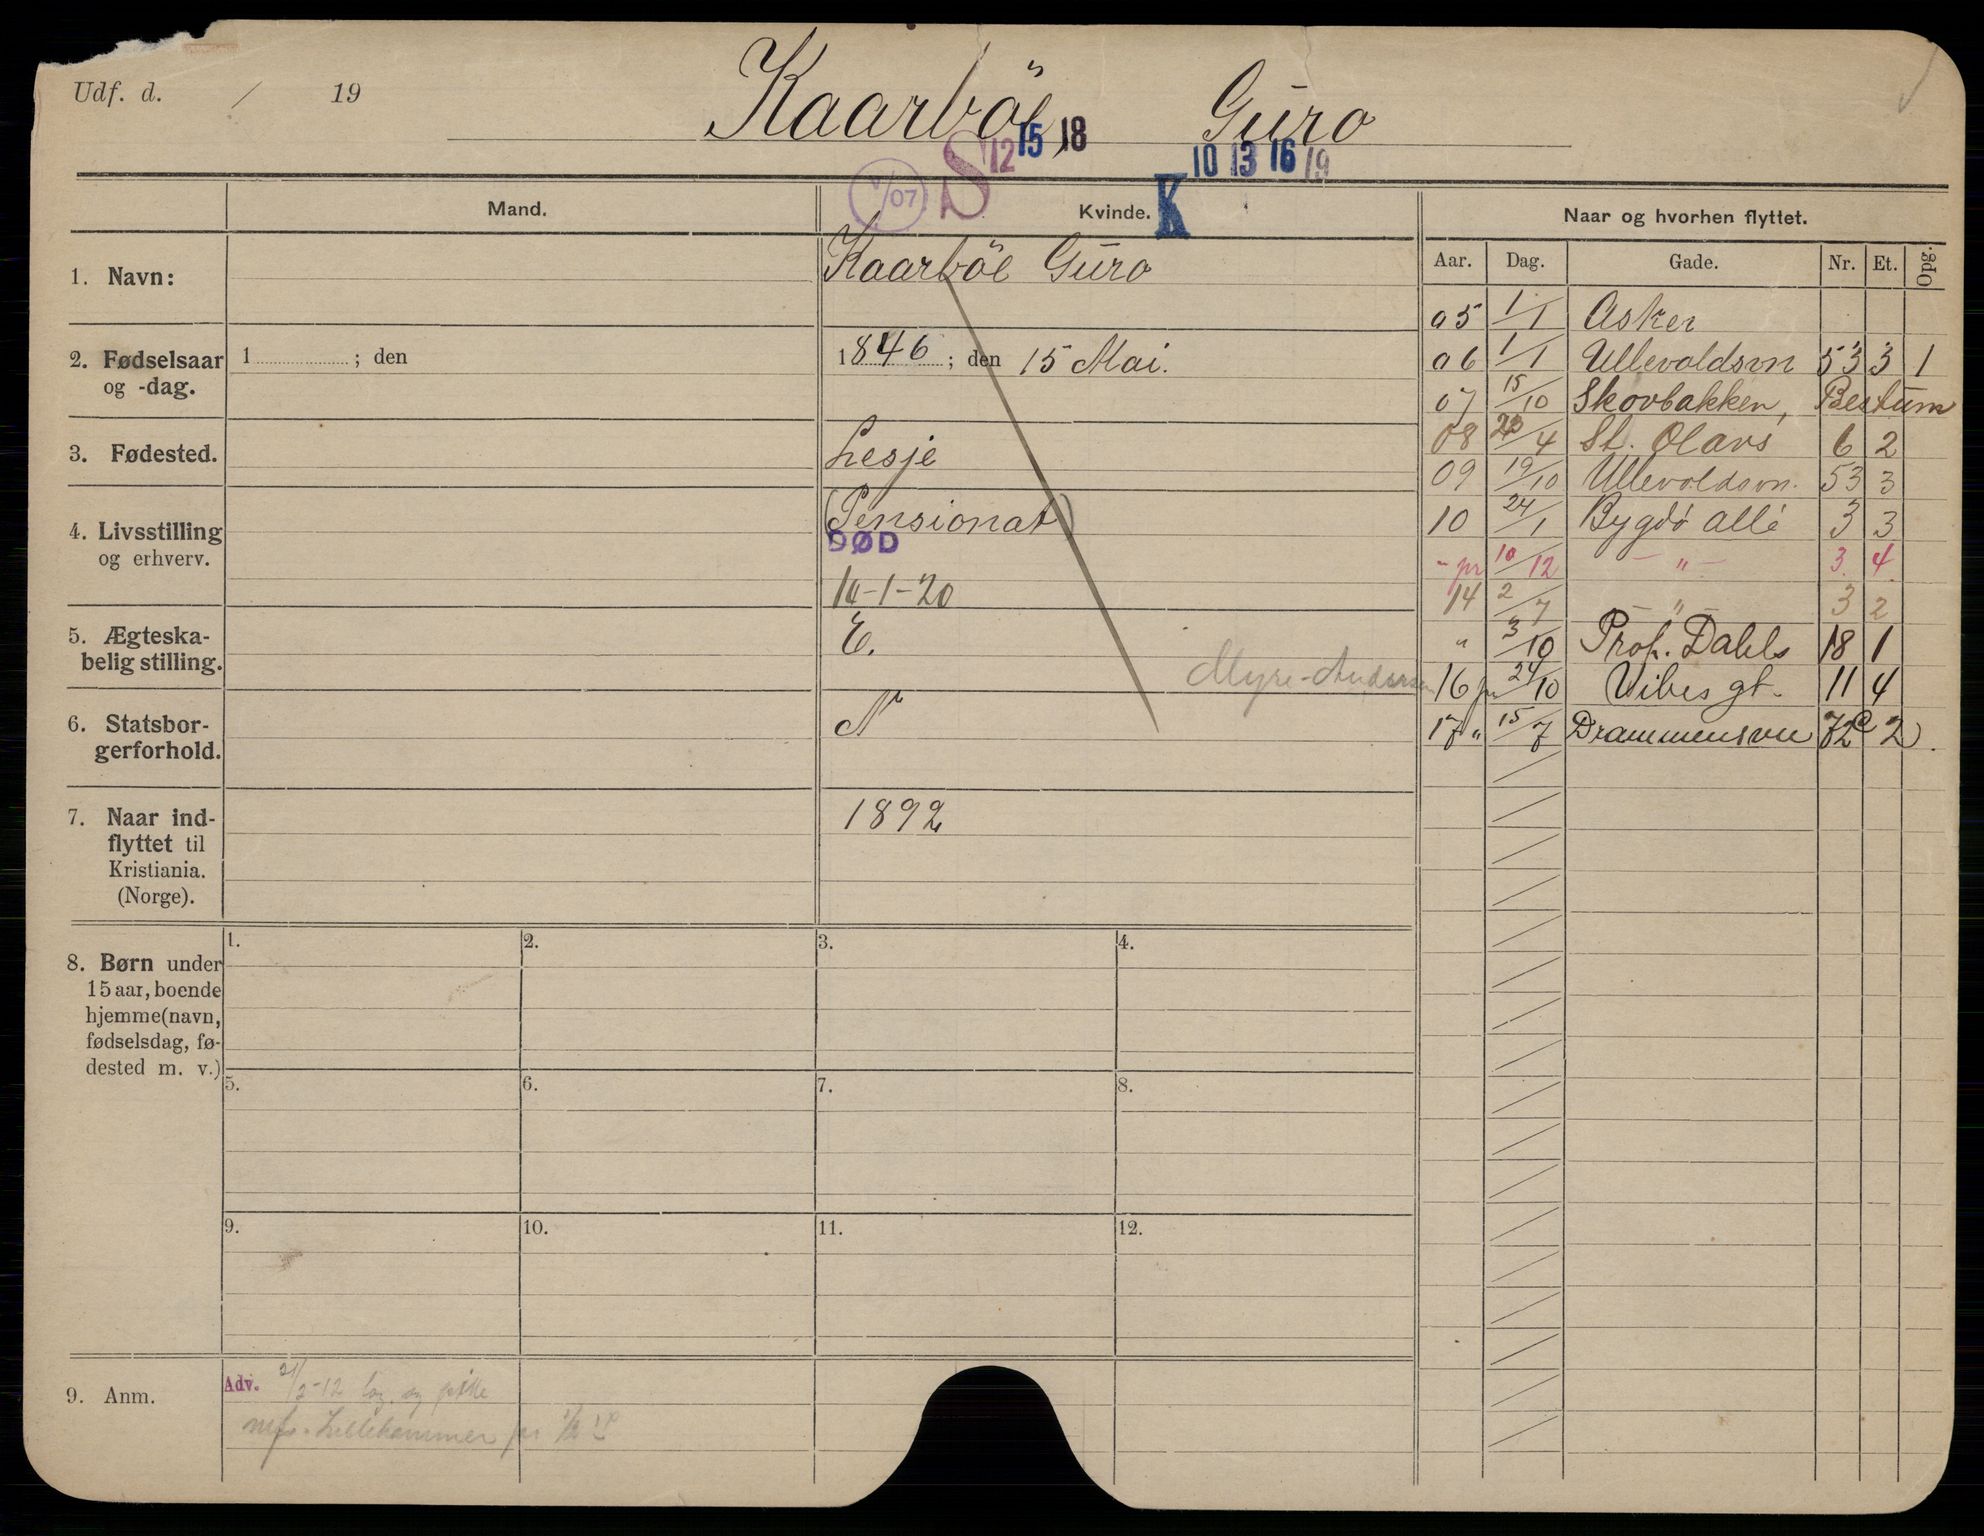 Udf. d. / 19
Kaarböe, Guro
S 12 15 18
K 10 13 16 19
V/07
Mand.
Kvinde.
Naar og hvorhen flyttet.
Aar. Dag. Gade. Nr. Et. Opg.
1. Navn:
Kaarböe Guro
2. Fødselsaar
og -dag.
1 ; den
1846 ; den 15 Mai.
3. Fødested.
Lesje
4. Livsstilling
og erhverv.
(Pensionat)
DØD
-1-20
5. Ægteska-
belig stilling.
E.
Myre-Andersen
6. Statsbor-
gerforhold.
N
7. Naar ind-
flyttet til
Kristiania.
(Norge).
1892
05 1/1 Asker
06 1/1 Ullevoldsvn 53 3 1
07 15/10 Skovbakken, Bestum
08 /4 St. Olavs 6 2
09 19/10 Ullevoldsvn. 53 3
10 24/1 Bygdö allé 3 3
- pr 10/12 - " - 3. 4.
14 2/7 - " - 3 2
" 3/10 Prof. Dahls 18 1
16 pr 24/10 Vibes gt. 11 4
17 " 15/7 Drammensvn 72c 2.
8. Børn under
15 aar, boende
hjemme (navn,
fødselsdag, fø-
dested m. v.)
1. 2. 3. 4.
5. 6. 7. 8.
9. 10. 11. 12.
9. Anm.
Adv. /2-12 og
Lillehammer